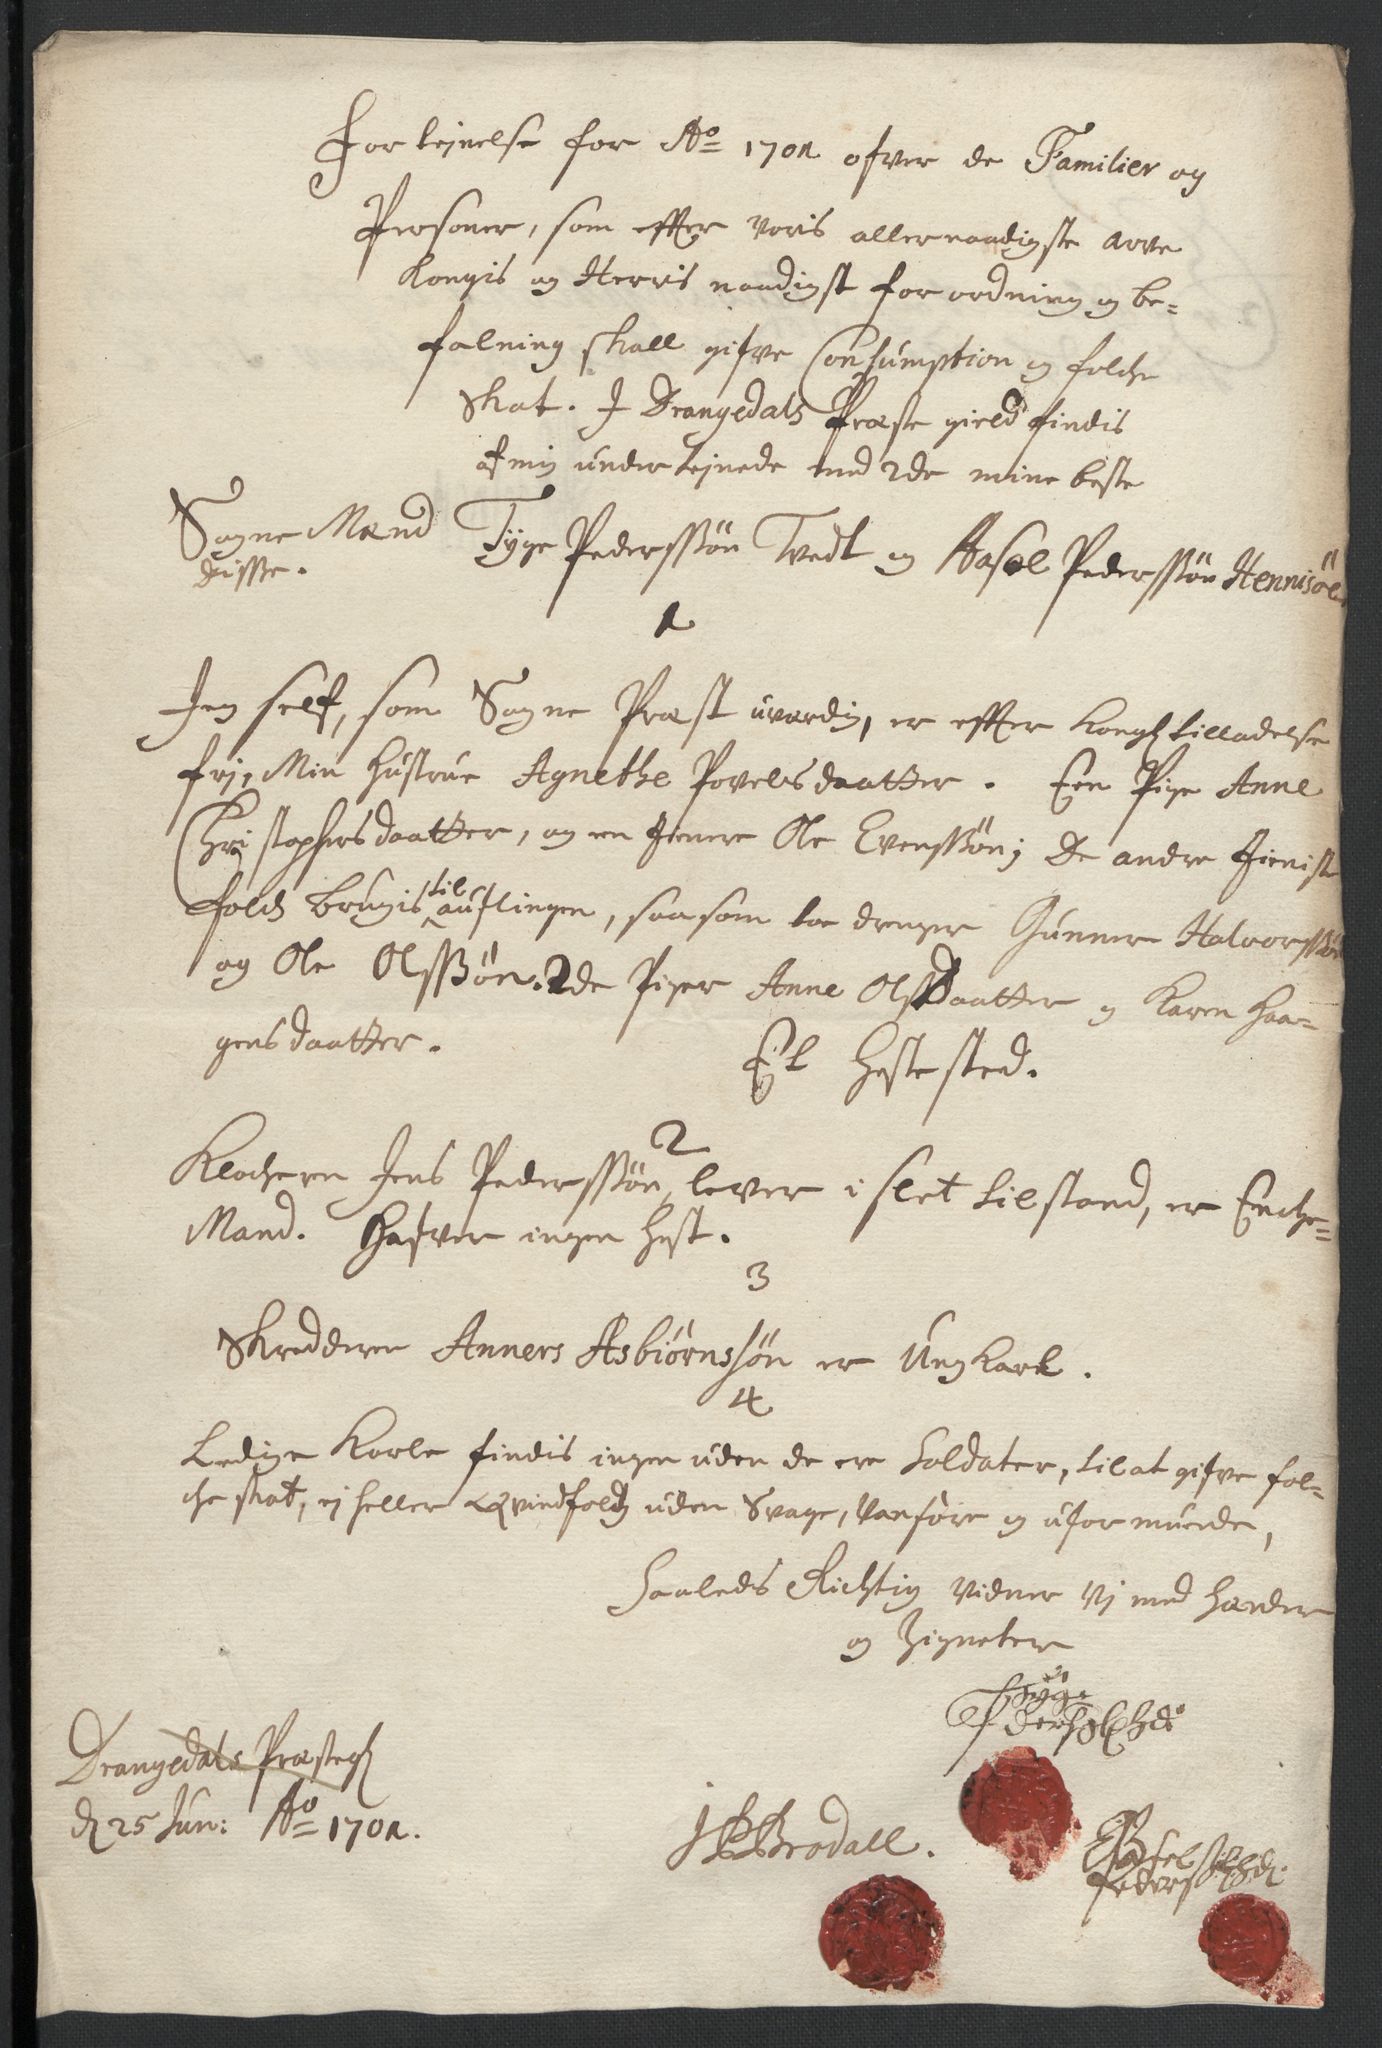 Fortejnelse for Ao 1701 ofver de Familier og
Personer, som effter voris allernaadigste arve
Kongis og Herris naadigst forordning og be=
falning skall gifve Consumption og folche
Skat. I Drangedals Præste gield findis
af mig undertejnede med 2de mine beste
Sogne Mænd Tÿge Pederssøn Tvedt og Aasel Pederssøn Hennisøe
disse.
1
Jeg self, som Sogne Præst uværdig, er effter Kongl tilladelse
frj, Min Hustrue Agnethe Povelsdaatter. Een Pige Anne
Christophersdaatter, og en tienere Ole Evenssøn; De andre tienist
folch brugis til auflingen, saasom toe drenger Gunner Halvorssøn
og Ole Olssøn. 2de Piger Anne Olsdaatter og Karen Haa=
gensdaatter.
Et Hestested.
2
Klocheren Jens Pederssøn, lever i slet tilstand, er Enche=
Mand. Hafver ingen Hest.
3
Skredderen Anners Asbiørnssøn er Ung Karl.
4
Ledige Karle findis ingen uden de ere Soldater, til at gifve fol=
che skat, ej heller Qvindfolch uden Svage, Vanføre og uformuende,
Saaleds Richtig vidner Vj med Hænder
og Zigneter
Tÿge
Pederssøn
Drangedals Præstegl
d 25 Jun: Ao 1701.
JPBrodall.
Aasel
Pederssøn